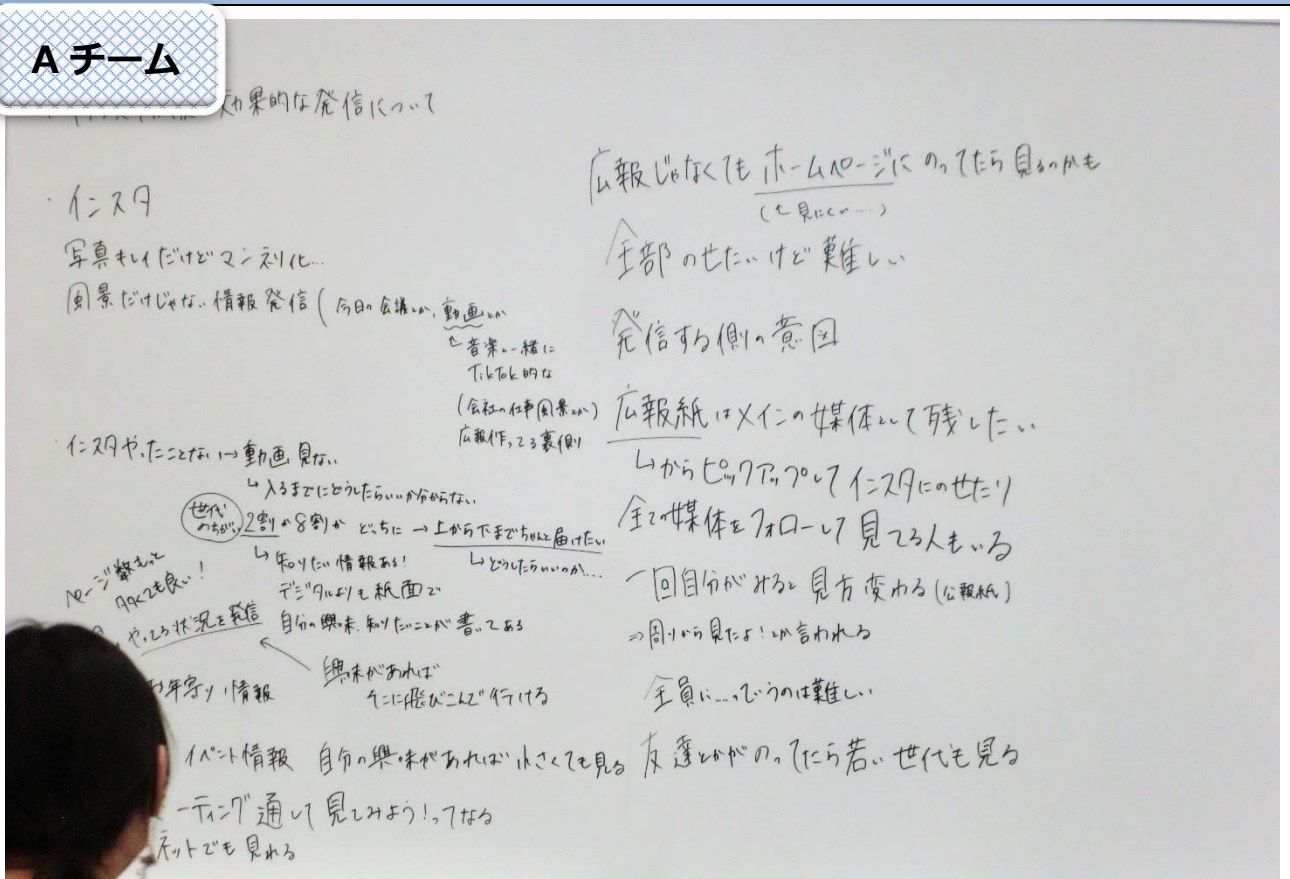 Aチーム
効果的な発信について
・インスタ
写真キレイだけどマンネリ化…
風景だけじゃない情報発信(今日の会議とか、動画とか
↑音楽と一緒に
TikTok的な
(会社の仕事風景とか)
広報作ってる裏側
・インスタやったことない→動画見ない
↳入るまでにどうしたらいいか分からない
世代のちがい
2割か8割か どっちに→上から下までちゃんと届けたい
↳どうしたらいいのか…
↳知りたい情報ある!
デジタルよりも紙面で
自分の興味、知りたいことが書いてある
ページ数もっと
多くても良い!
やってる状況を発信
興味があれば
そこに飛びこんで行ける
お年寄り情報
イベント情報 自分の興味があれば小さくても見る
ーティング通して見てみよう!ってなる
ネットでも見れる
広報じゃなくてもホームページにのってたら見るのかも
(↑見にくい…)
全部のせたいけど難しい
発信する側の意図
広報紙はメインの媒体として残したい
↳からピックアップしてインスタにのせたり
全ての媒体をフォローして見てる人もいる
一回自分がみると見方変わる(公報紙)
⇒周りから見たよ!とか言われる
全員に…っていうのは難しい
友達とかがのってたら若い世代も見る